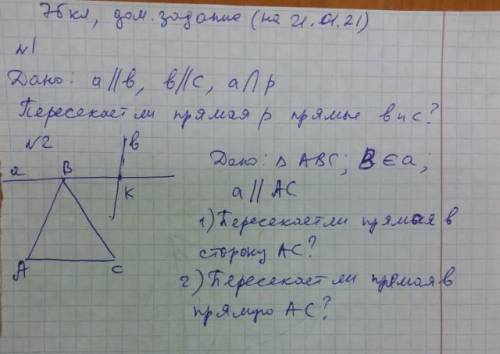 7б кл, дом. задание (на 21.01.21)
№1
Дано: a∥в, в∥c, a⋂p
Пересекает ли прямая p прямые в и c?
№2
a B в K A C
Дано: Δ ABC; B∈a;
a∥AC
1) Пересекает ли прямая в
сторону AC?
2) Пересекает ли прямая в
прямую AC?